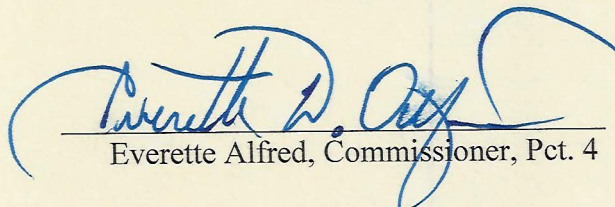 Everette D. Alfred
Everette Alfred, Commissioner, Pct. 4